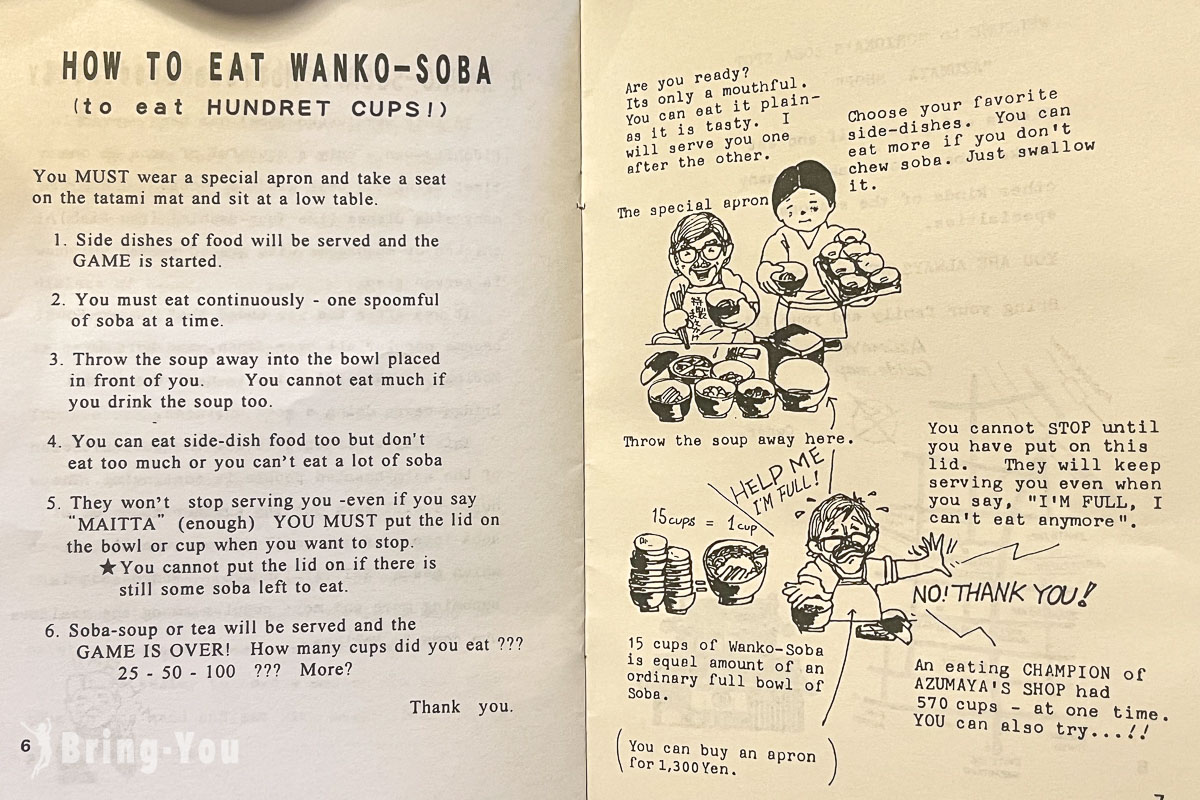 HOW TO EAT WANKO-SOBA
(to eat HUNDRET CUPS!)
You MUST wear a special apron and take a seat
on the tatami mat and sit at a low table.
1. Side dishes of food will be served and the
GAME is started.
2. You must eat continuously - one spoomful
of soba at a time.
3. Throw the soup away into the bowl placed
in front of you. You cannot eat much if
you drink the soup too.
4. You can eat side-dish food too but don't
eat too much or you can't eat a lot of soba
5. They won't stop serving you -even if you say
"MAITTA" (enough) YOU MUST put the lid on
the bowl or cup when you want to stop.
★You cannot put the lid on if there is
still some soba left to eat.
6. Soba-soup or tea will be served and the
GAME IS OVER! How many cups did you eat ???
25 - 50 - 100 ??? More?
Thank you.
6
Bring-You
Are you ready?
Its only a mouthful.
You can eat it plain-
as it is tasty. I
will serve you one
after the other.
Choose your favorite
side-dishes. You can
eat more if you don't
chew soba. Just swallow
it.
The special apron
Throw the soup away here.
HELP ME
I'M FULL!
15 cups = 1 cup
You cannot STOP until
you have put on this
lid. They will keep
serving you even when
you say, "I'M FULL, I
can't eat anymore".
NO! THANK YOU!
15 cups of Wanko-Soba
is equal amount of an
ordinary full bowl of
Soba.
An eating CHAMPION of
AZUMAYA'S SHOP had
570 cups - at one time.
YOU can also try...!!
(You can buy an apron
for 1,300 Yen.)